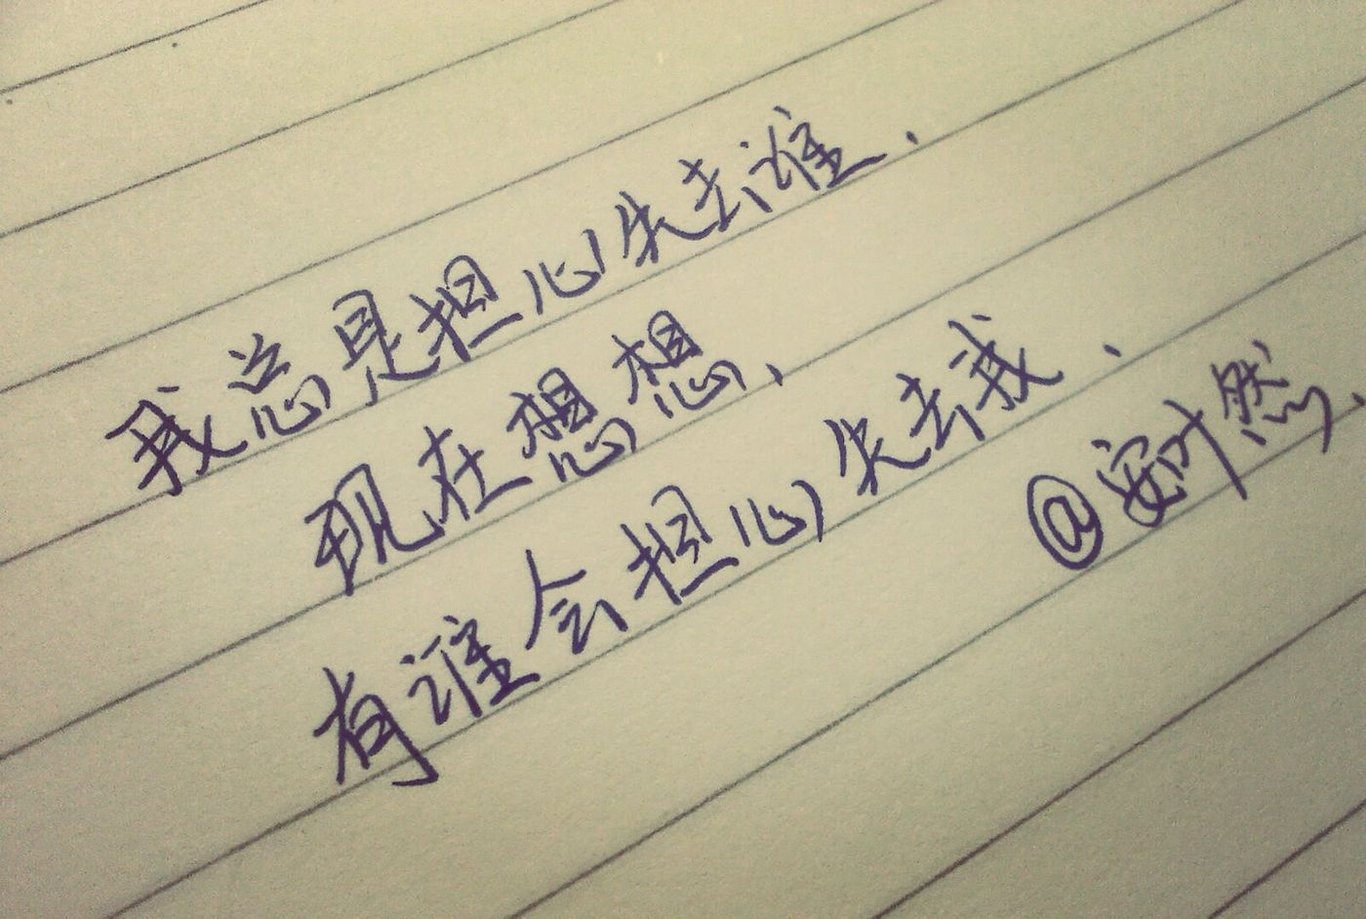 我总是担心失去谁.
现在想想、
有谁会担心失去我.
@安叶然、